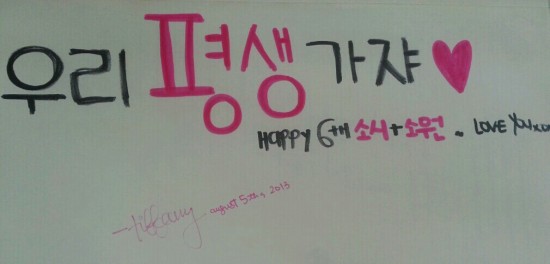 우리 평생 가쟈♥
HAPPY 6th 소시+소원 ~ LOVE YOU xo
-Tiffany august 5th, 2013